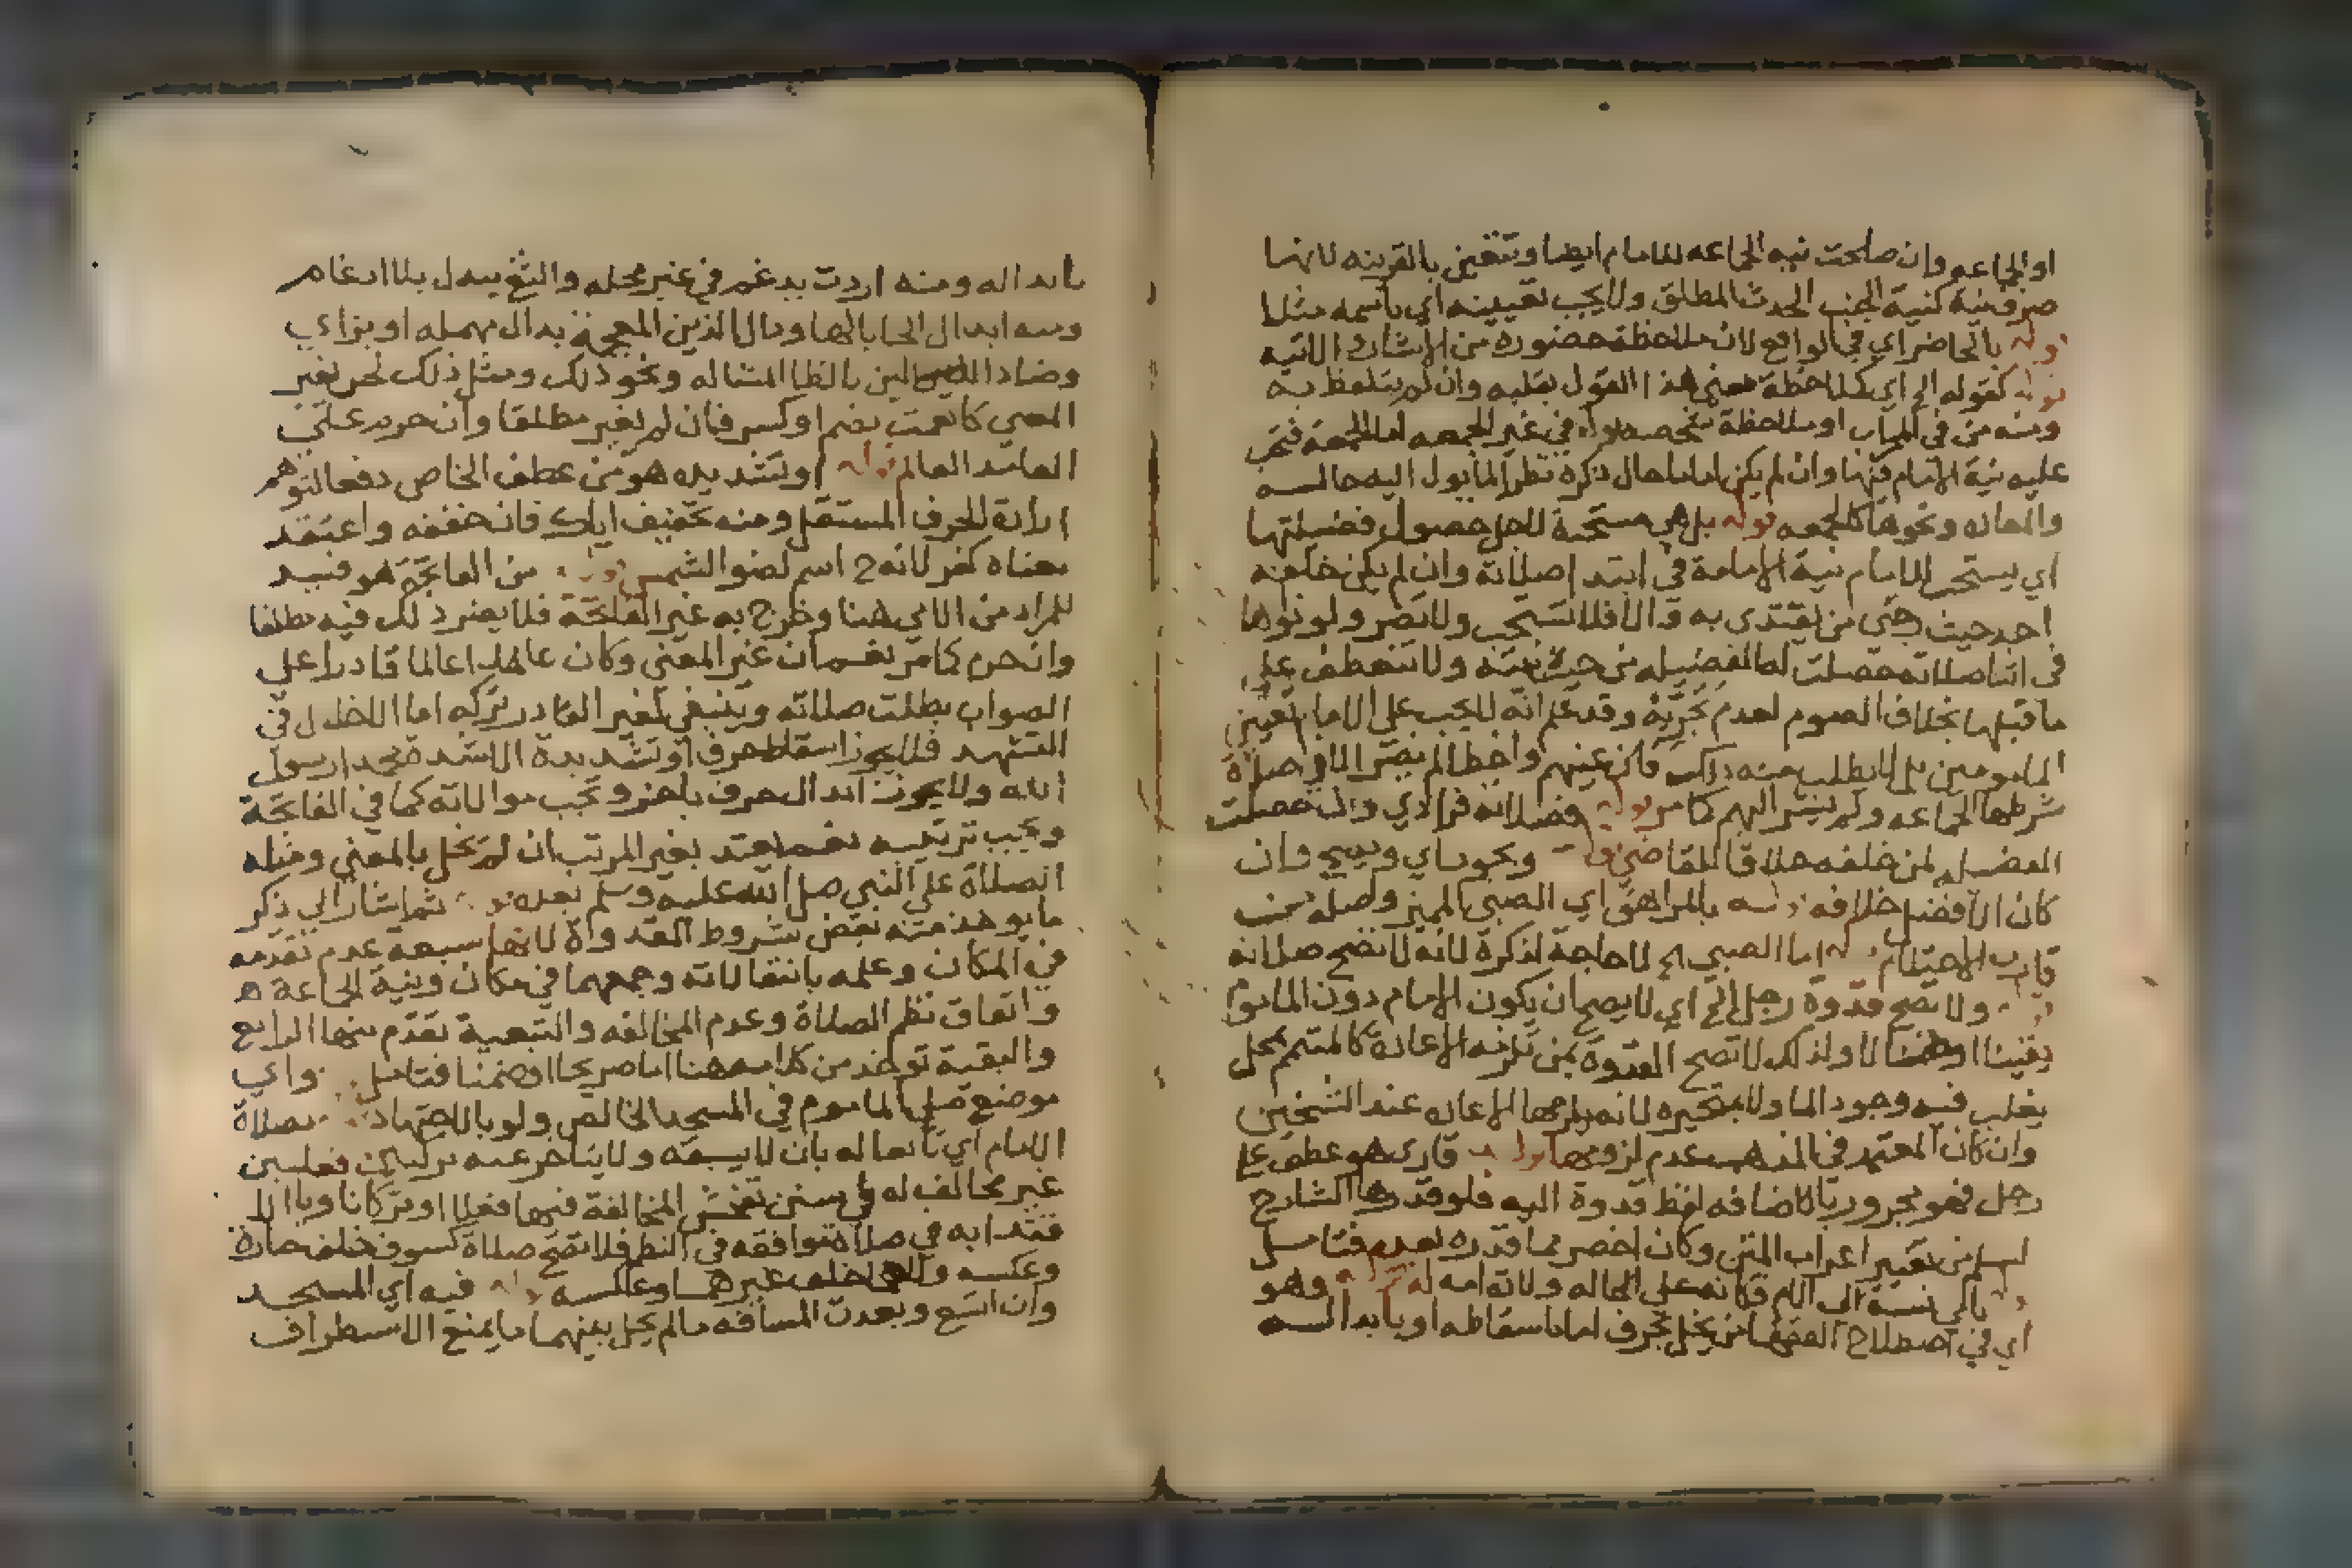 او الجماعه وان صلحت نيه الجماعه للامام ايضا وتتعين بالقرينه لانها
صرفية كنية الجنب الحدث المطلق ولا يجب تعيينه اي باسمه مثلا
قوله بالحاضر اي في الواقع لان ملاحظة حضوره من الاشارة الاتية
قوله كقوله الخ اي بملاحظة معنى هذا القول بقلبه وان لم يتلفظ به
ومنه من في المحراب او ملاحظة شخصه قوله في غير الجمعه اما الجمعة فتجب
عليه نية الامام فيها وان لم يكن اماما حال ذكره نظرا لما يول اليه حاله
والمعاده ونحوها كالجمعه قوله بل هي مستحبة لاجل حصول فضيلتها
اي يستحب للامام نية الامامة في ابتدا صلاته وان لم يكن خلفه
احد حيث رجي من يقتدي به والا فلا تستحب ولا تضر ولو نواها
في اثنا صلاته حصلت له الفضيله من حين نيته ولا تنعطف على
ما قبلها بخلاف الصوم لعدم تجزيه وقد علم انه لا يجب على الامام تعيين
المامومين بل لا يطلب منه ذلك فان عينهم واخطا لم يضر الا في صلاة
شرطها الجماعه ولم يشر اليهم كما مر قوله فصلاته فرادي وان حصلت
الفضيله لمن خلفه خلافا للقاضي قوله ونحو ما ي ويصح وان
كان الافضل خلافه قوله بالمراهق اي الصبي المميز واصله من
قارب الاحتلام قوله اما الصبي الخ لا حاجة لذكره لانه لا تصح صلاته
قوله ولا تصح قدوة رجل الخ اي لا يصح ان يكون الامام دون الماموم
يقينا او احتمالا ولذلك لا تصح القدوة بمن تلزمه الاعادة كالمتيمم بمحل
يغلب فيه وجود الما ولا بمتحيره لانه يلزمها الاعاده عند الشيخين
وان كان المعتمد في المذهب عدم لزومها قوله قاري هو عطف على
رجل فهو مجرور بالاضافه لفظ قدوة اليه فلو قدرها الشارح
لسلم من تغيير اعراب المتن وكان اخصر مما قدره بعده فتامل
قوله بامي نسبة الى الام فكانه على الحاله ولاته امه له قوله وهو
اي في اصطلاح الفقها من يخل بحرف اما باسقاطه او بابداله
بابداله ومنه اردت يدغم في غير محله والثغ يبدل بلا ادغام
ومنه ابدال الحا بالها ودال الذين المعجمة بدال مهمله او بزاي
وضاد الضالين بالظا المشاله ونحو ذلك ومثل ذلك لحن يغير
المعنى كانعمت بضم او كسر فان لم يغير مطلقا وان حرم على
العامد العالم قوله او تشديده هو من عطف الخاص دفعا لتوهم
ارادة الحرف المستقل ومنه تخفيف اياك فان خففه واعتقد
معناه كفر لانه ح اسم لضو الشمس قوله من الفاتحة هو قيد
للمراد من الامي هنا وخرج به غير الفاتحة فلا يضر ذلك فيه مطلقا
وان حرم كما مر نعم ان غير المعنى وكان عامدا عالما قادرا على
الصواب بطلت صلاته وينبغي لغير القادر تركه اما الاخلال في
التشهد فلا يجوز اسقاط حرف او تشديدة الا شدة محمد رسول
الله ولا يجوز ابدال حرف باخر وتجب موالاته كما في الفاتحة
ويجب ترتيبه نعم يعتد بغير المرتب ان لم يخل بالمعنى ومثله
الصلاة على النبي صلى الله عليه وسلم بعده قوله ثم اشار الى ذكر
ما يوخذ منه بعض شروط القدوة لانها سبعة عدم تقدمه
في المكان وعلمه بانتقالاته وجمعهما في مكان ونية الجماعة
واتفاق نظم الصلاة وعدم المخالفه والتبعية تقدم منها الرابع
والبقية توخذ من كلامه هنا اما صريحا او ضمنا فتامل قوله واي
موضع صلى الماموم في المسجد الخالص ولو بالاجتهاد قوله بصلاة
الامام اي تابعا له بان لا يسبقه ولا يتاخر عنه بركنين فعليين
غير مخالف له في سنن تفحش المخالفة فيها فعلا او تركا ناويا الا
قتدا به في صلاة توافقه في النظم فلا تصح صلاة كسوف خلف جنازة
وعكسه ولا هي خلف غيرهما وعكسه قوله فيه اي المسجد
وان اتسع وبعدت المسافه ما لم يحل بينهما ما يمنع الاستطراف